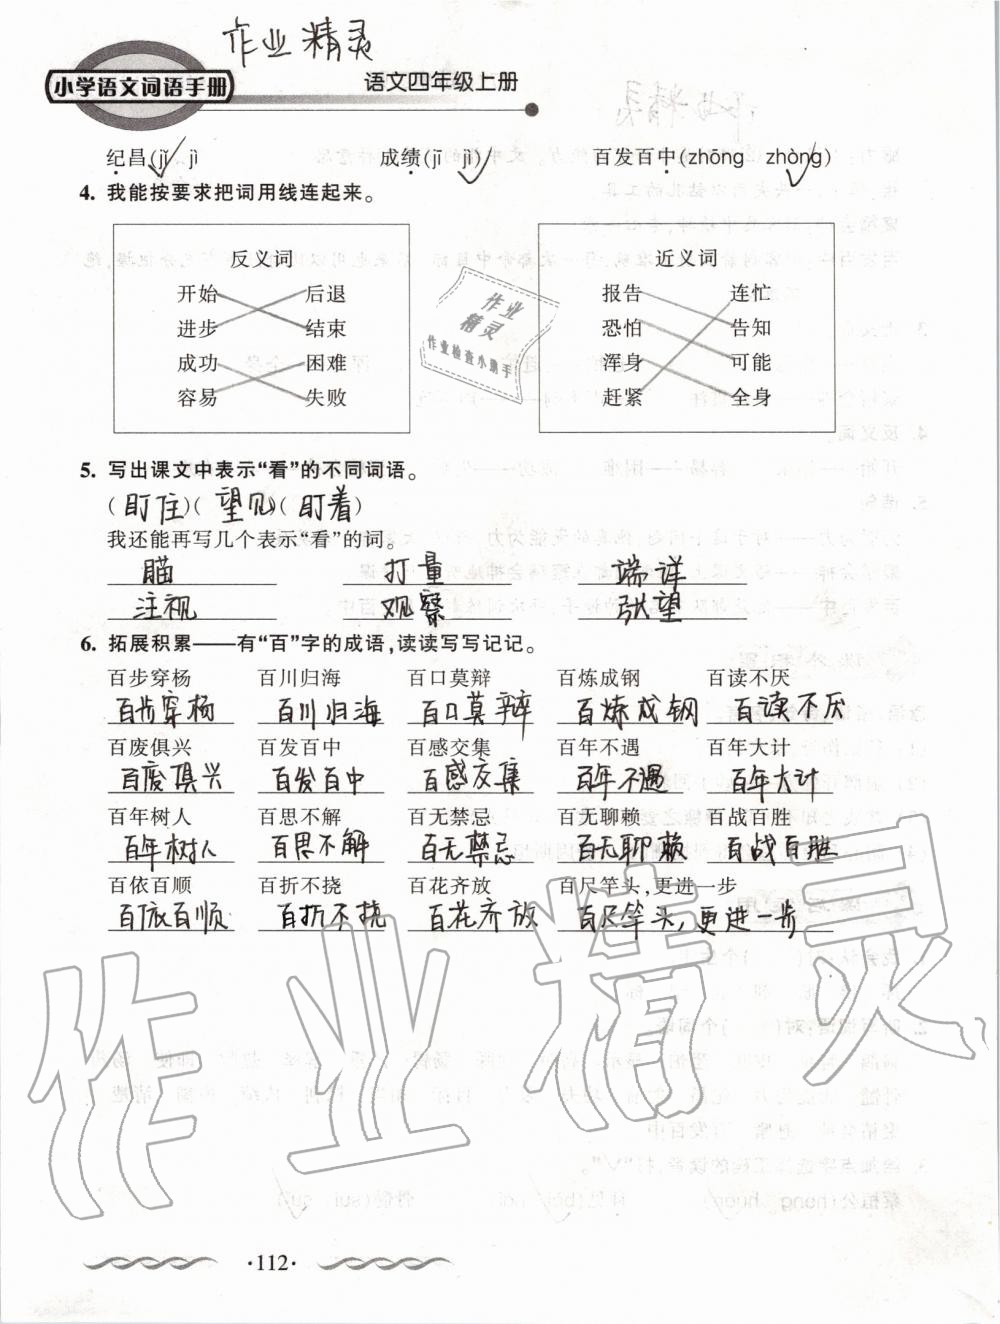 作业精灵
小学语文词语手册
语文四年级上册
纪昌(jǐ jì) 成绩(jī jì) 百发百中(zhōng zhòng)
4. 我能按要求把词用线连起来。
反义词 近义词
开始 后退 报告 连忙
进步 结束 恐怕 告知
成功 困难 浑身 可能
容易 失败 赶紧 全身
作业
精灵
作业检查小助手
5. 写出课文中表示“看”的不同词语。
(盯住)(望见)(盯着)
我还能再写几个表示“看”的词。
瞄 打量 端详
注视 观察 张望
6. 拓展积累——有“百”字的成语,读读写写记记。
百步穿杨 百川归海 百口莫辩 百炼成钢 百读不厌
百步穿杨 百川归海 百口莫辩 百炼成钢 百读不厌
百废俱兴 百发百中 百感交集 百年不遇 百年大计
百废俱兴 百发百中 百感交集 百年不遇 百年大计
百年树人 百思不解 百无禁忌 百无聊赖 百战百胜
百年树人 百思不解 百无禁忌 百无聊赖 百战百胜
百依百顺 百折不挠 百花齐放 百尺竿头,更进一步
百依百顺 百折不挠 百花齐放 百尺竿头,更进一步
作业精灵
·112·